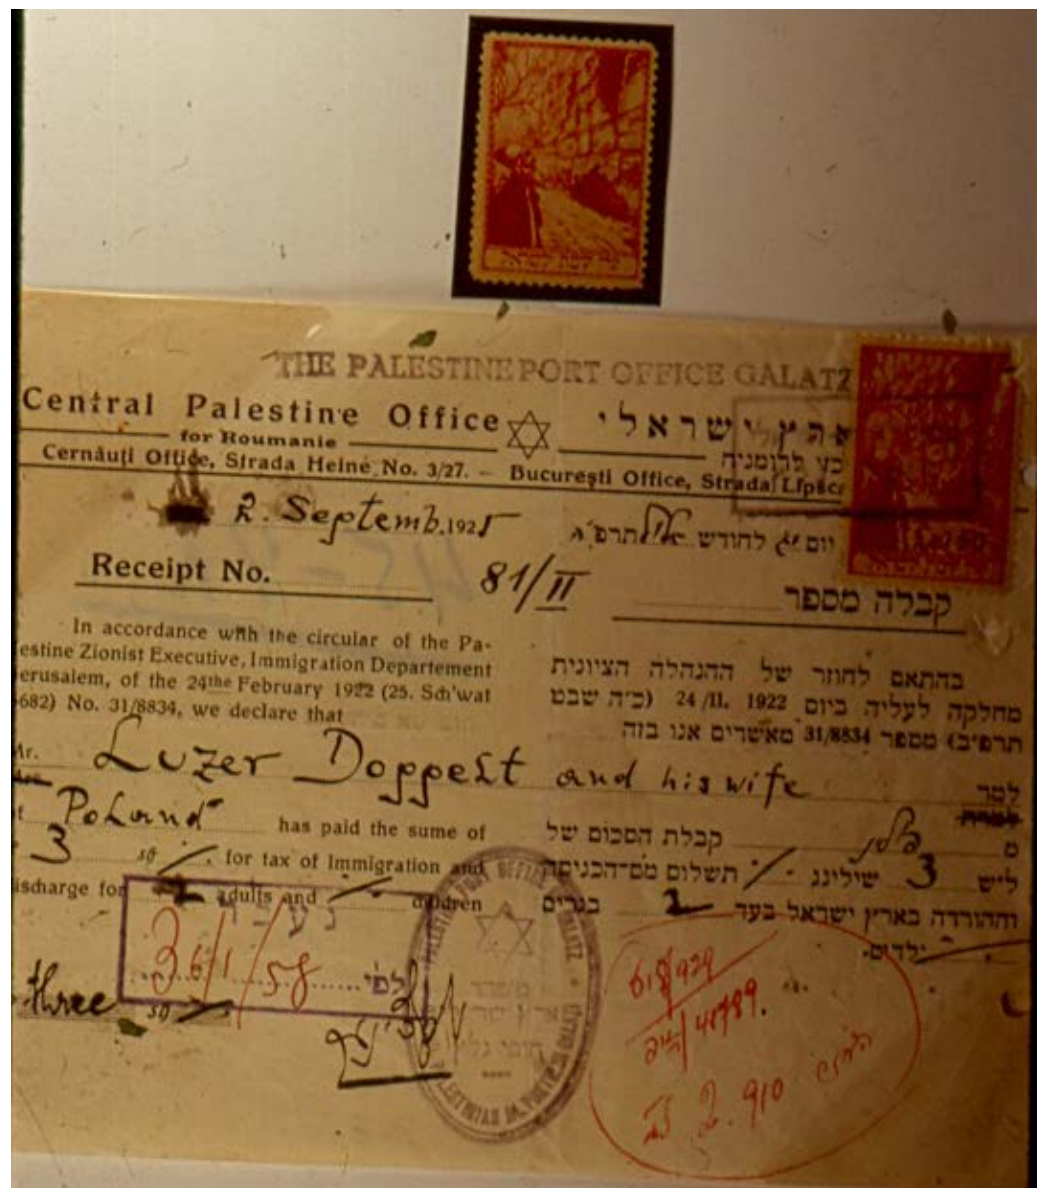 קרן קימת לישראל
THE PALESTINE PORT OFFICE GALATZ
Central Palestine Office
ארץ ישראלי
for Roumanie
כזי לרומניה
Cernăuți Office, Strada Heine No. 3/27. — București Office, Strada Lipsc
2. Septemb. 1925
יום יג לחודש אלול תרפ"ה
Receipt No. 81/II
קבלה מספר
In accordance with the circular of the Pa-
estine Zionist Executive, Immigration Departement
erusalem, of the 24the February 1922 (25. Sch'wat
682) No. 31/8834, we declare that
Mr. Luzer Doppelt and his wife
Poland has paid the sume of
3 sh /. for tax of Immigration and
ischarge for 2 adults and children
three sh
בהתאם לחוזר של ההנהלה הציונית
מחלקה לעליה ביום 24/II. 1922 (כ"ה שבט
תרפ"ב) מספר 31/8834 מאשרים אנו בזה
למר
למרת
מ פולין קבלת הסכום של
ליש 3 שילינג תשלום מס-הכניסה
וההורדה בארץ ישראל בעד 2 בגרים
ילדים.
לפי 36/1/58
PALESTINE PORT OFFICE GALATZ
משרד
929
41789.
910